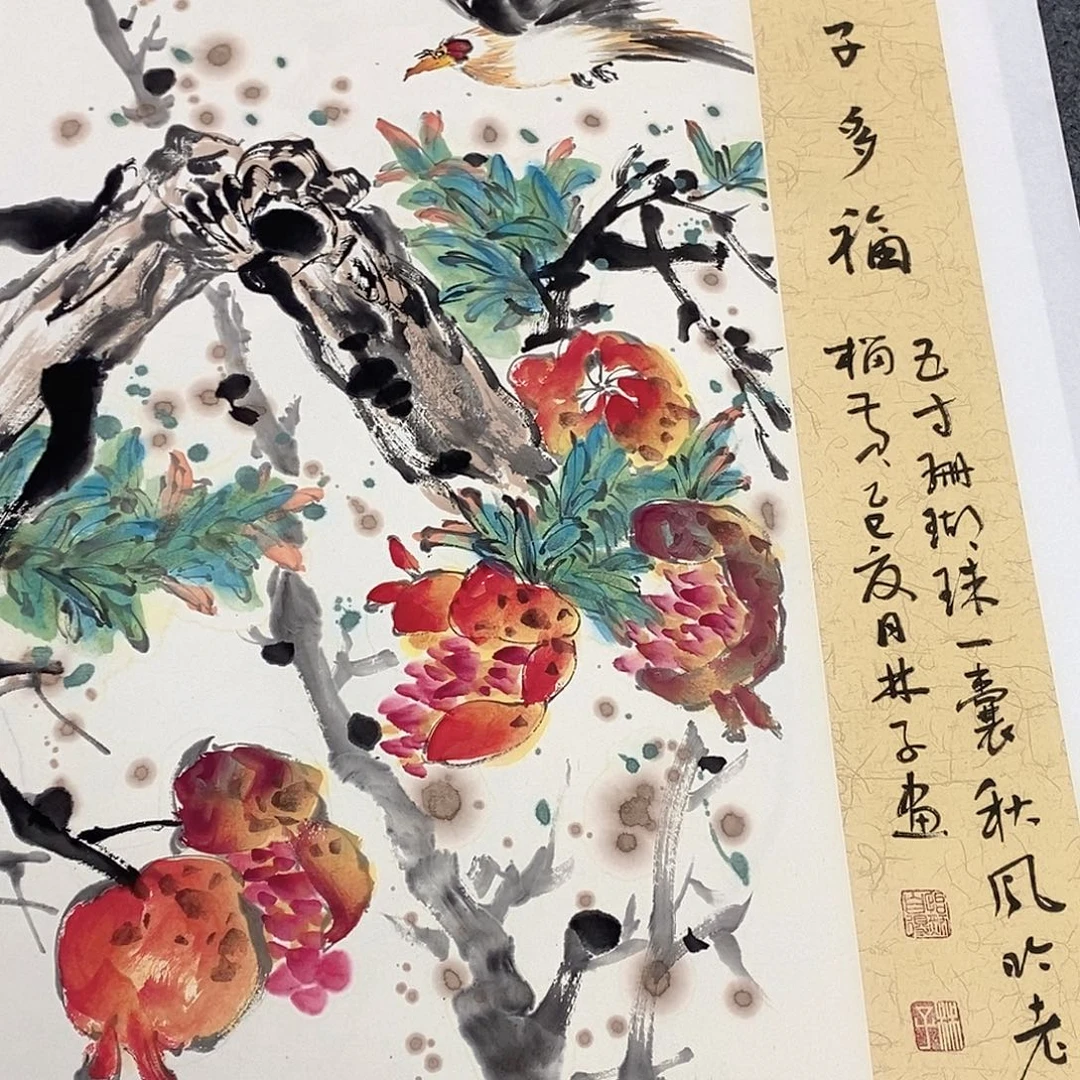 子多福
五寸珊瑚珠一囊秋风吹老
乙巳夏月林子画
林子